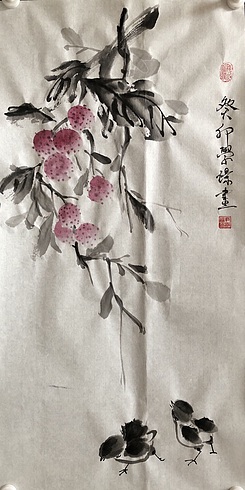 癸卯學緣畫